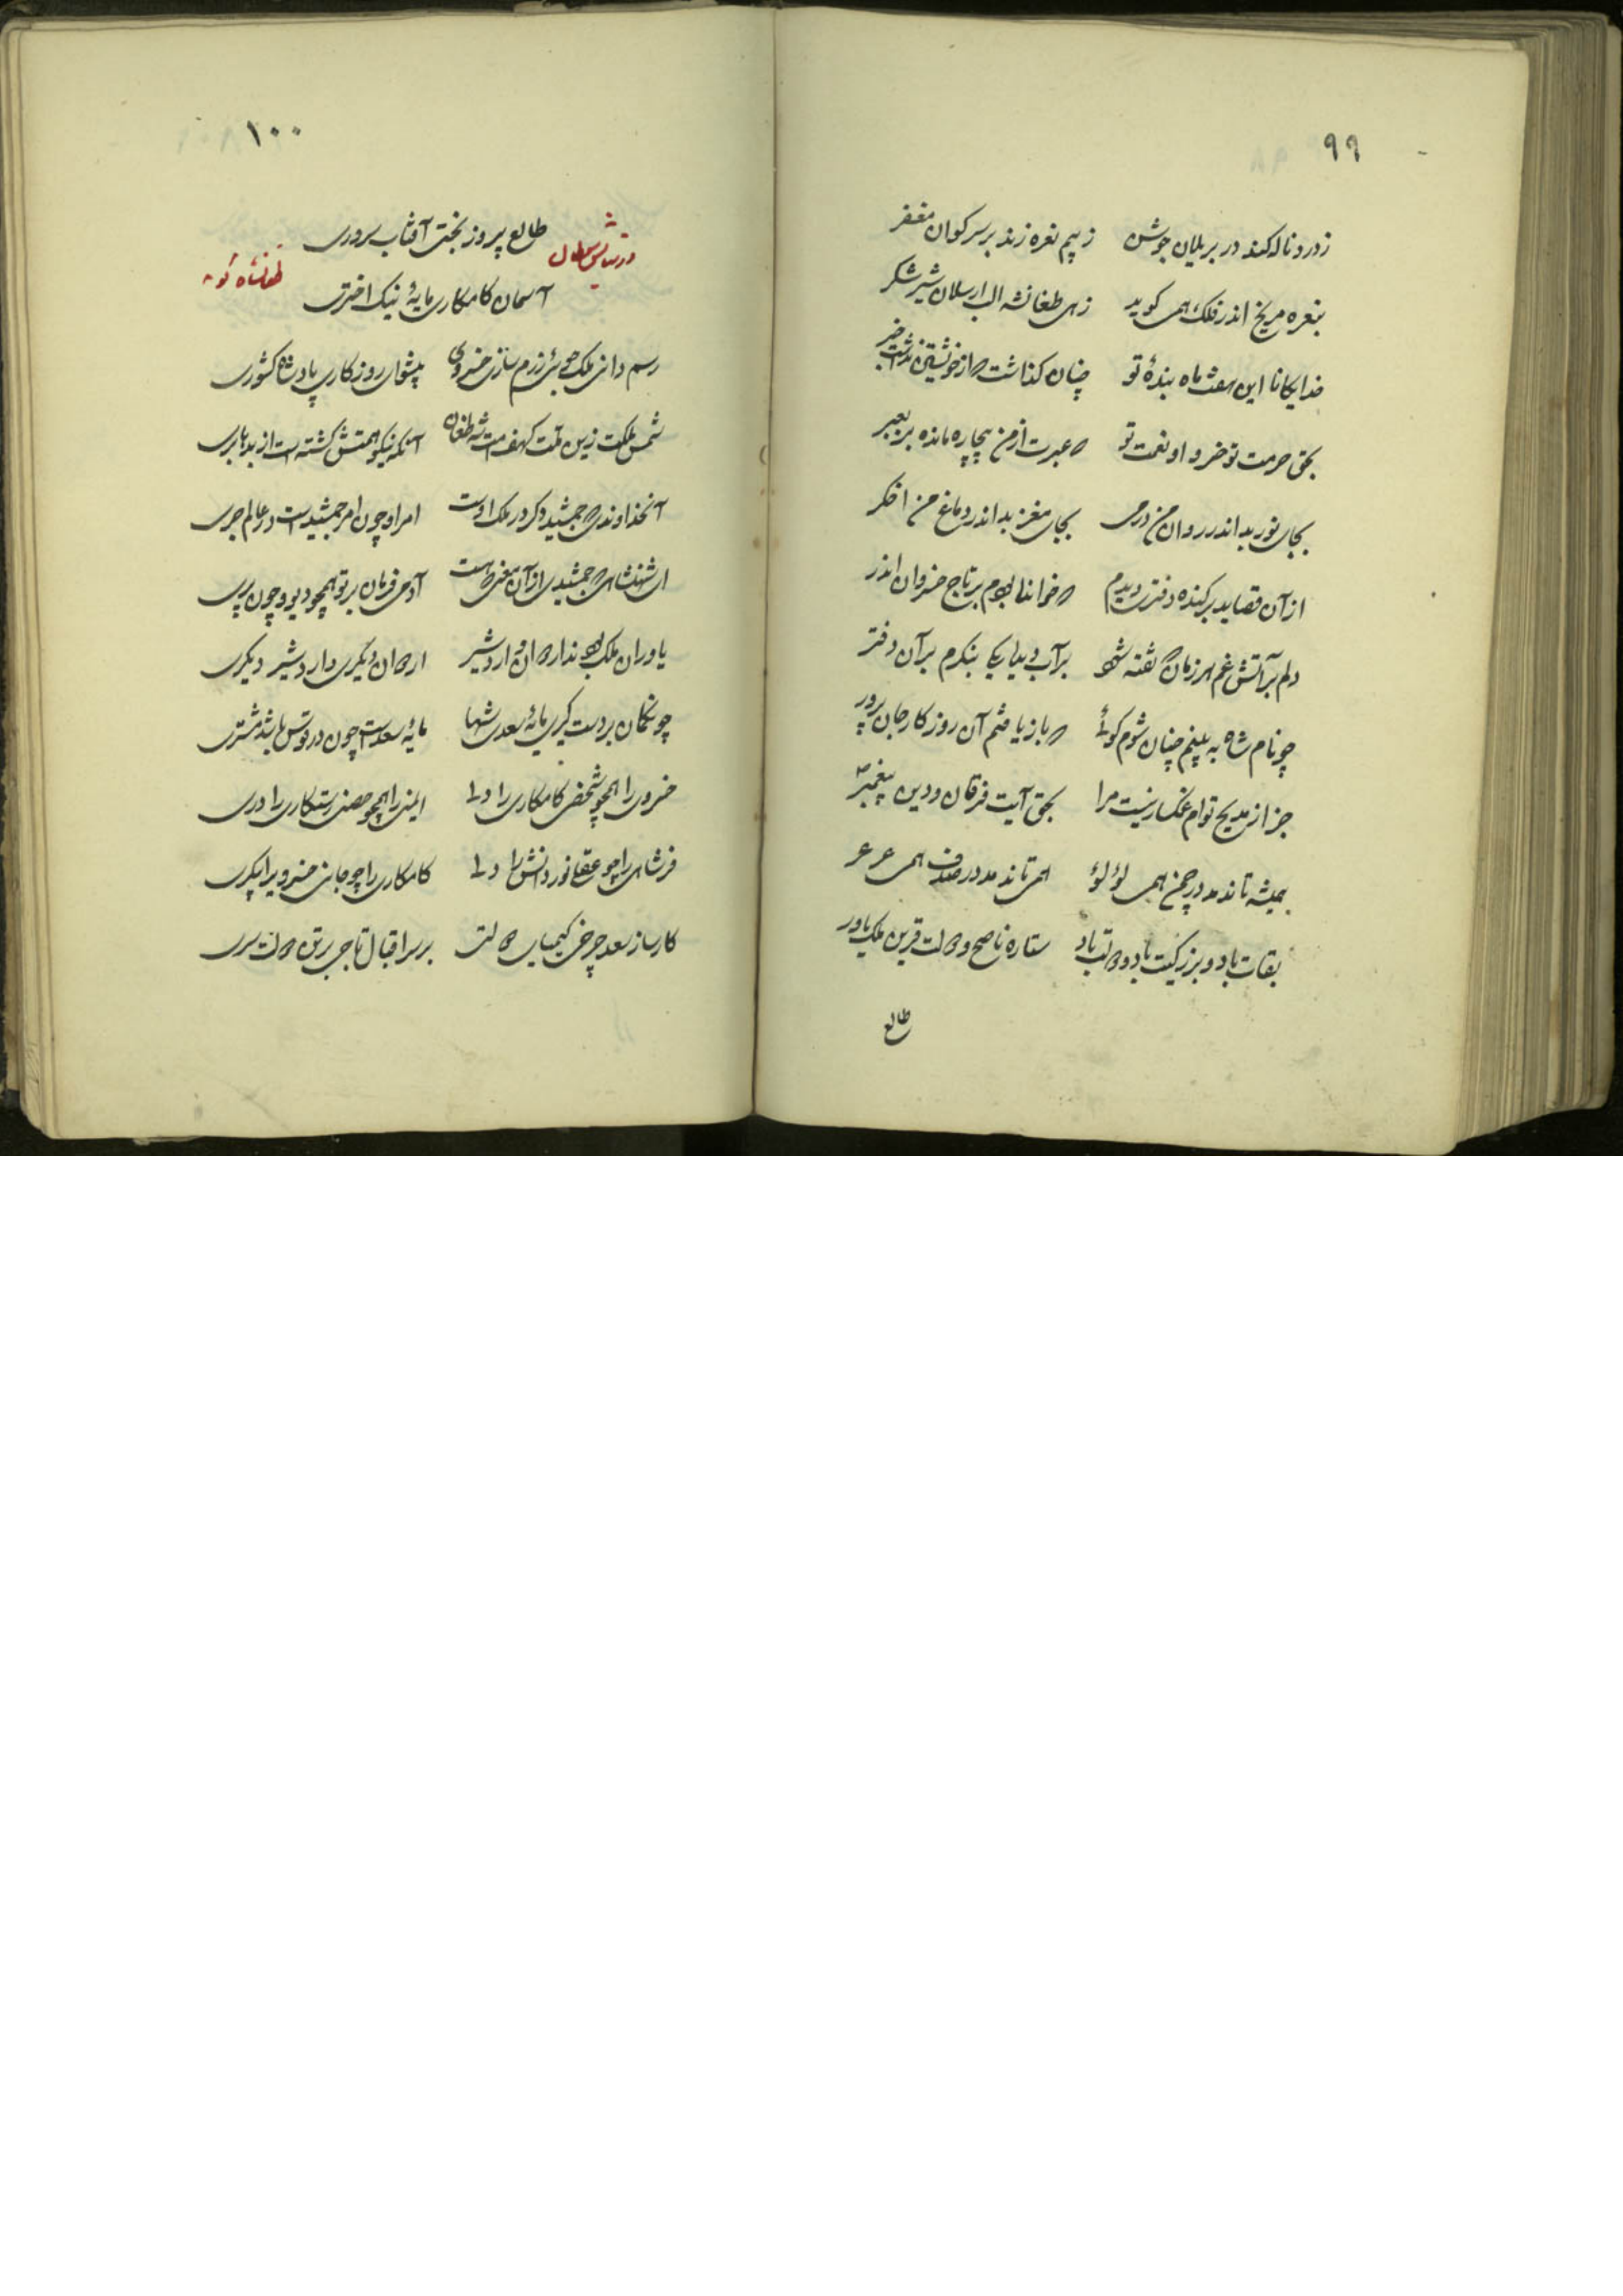 ۹۹
ز درد ناله کند در بر یلان جوشن ز بیم نعره زند بر سر گوان مغفر
بنعره مریخ اندر فلک همی کوید زهی طغانشه الب ارسلان شیر شکر
خدایکانا این هفت ماه بندهٔ تو چنان کذاشت که از خویشتن نداشت خبر
بحق حرمت تو خسروا و نعمت تو که عبرت از من بیچاره مانده بر
بجای نور بد اندر روان من دمی بجای مغز بد اندر دماغ من اخکر
از آن قصاید پرکنده دفتری دیدم که خواندا بودم بر تاج خسروان اندر
دلم بر آتش غم هر زمان که تفته شود بر آب دیدا یکایک بنکرم بر آن دفتر
چو نام شاه به بینم چنان شوم کوئی که باز یافتم آن روزکار جان پرور
جز از مدیح توام غمکسار نیست مرا بحق آیت فرقان و دین پیغمبر
همیشه تا ندمد در چمن همی لؤلؤ همی تا ندمد در صدف همی عرعر
بقات باد و بزرکیت باد و دولت باد ستاره ناصح و دولت قرین ملک یاور
طالع
۱۰۰
در ستایش سلطان طغانشاه کوید
طالع پیروز بختی آفتاب سروری
آسمان کامکاری مایهٔ نیک اختری
رسم دانی ملک جوئی رزم سازی خسروی پیشوای روزکاری پادشاه کشوری
شمس ملکت زین ملت کهف امت شه طغان آنکه نیکو همتش کشته است از بد بری
آنخداوندی که جمشید دکر در ملک اوست امر او چون امر جمشید است در عالم جری
ای شهنشاهی که جمشیدی از آن معنی که هست آدمی فرمان بر تو همچو دیو و چون پری
یاوران ملک بود ندارد ان و اردشیر اردوان دیکری و اردشیر دیکری
چونکمان بر دست کیری مایهٔ سعدی شها مایهٔ سعد است چون در قوس باشد مشتری
خسروی را همچو شخص کامکاری را دلی ایمنی را همچو حصنی رستکاری را دری
فر شاهی را چو عقلی نور دانش را دلی کامکاری را چو جانی خسرویرا پیکری
کارساز سعد چرخی کیمیای دولتی بر سر اقبال تاجی بر تن دولت سری